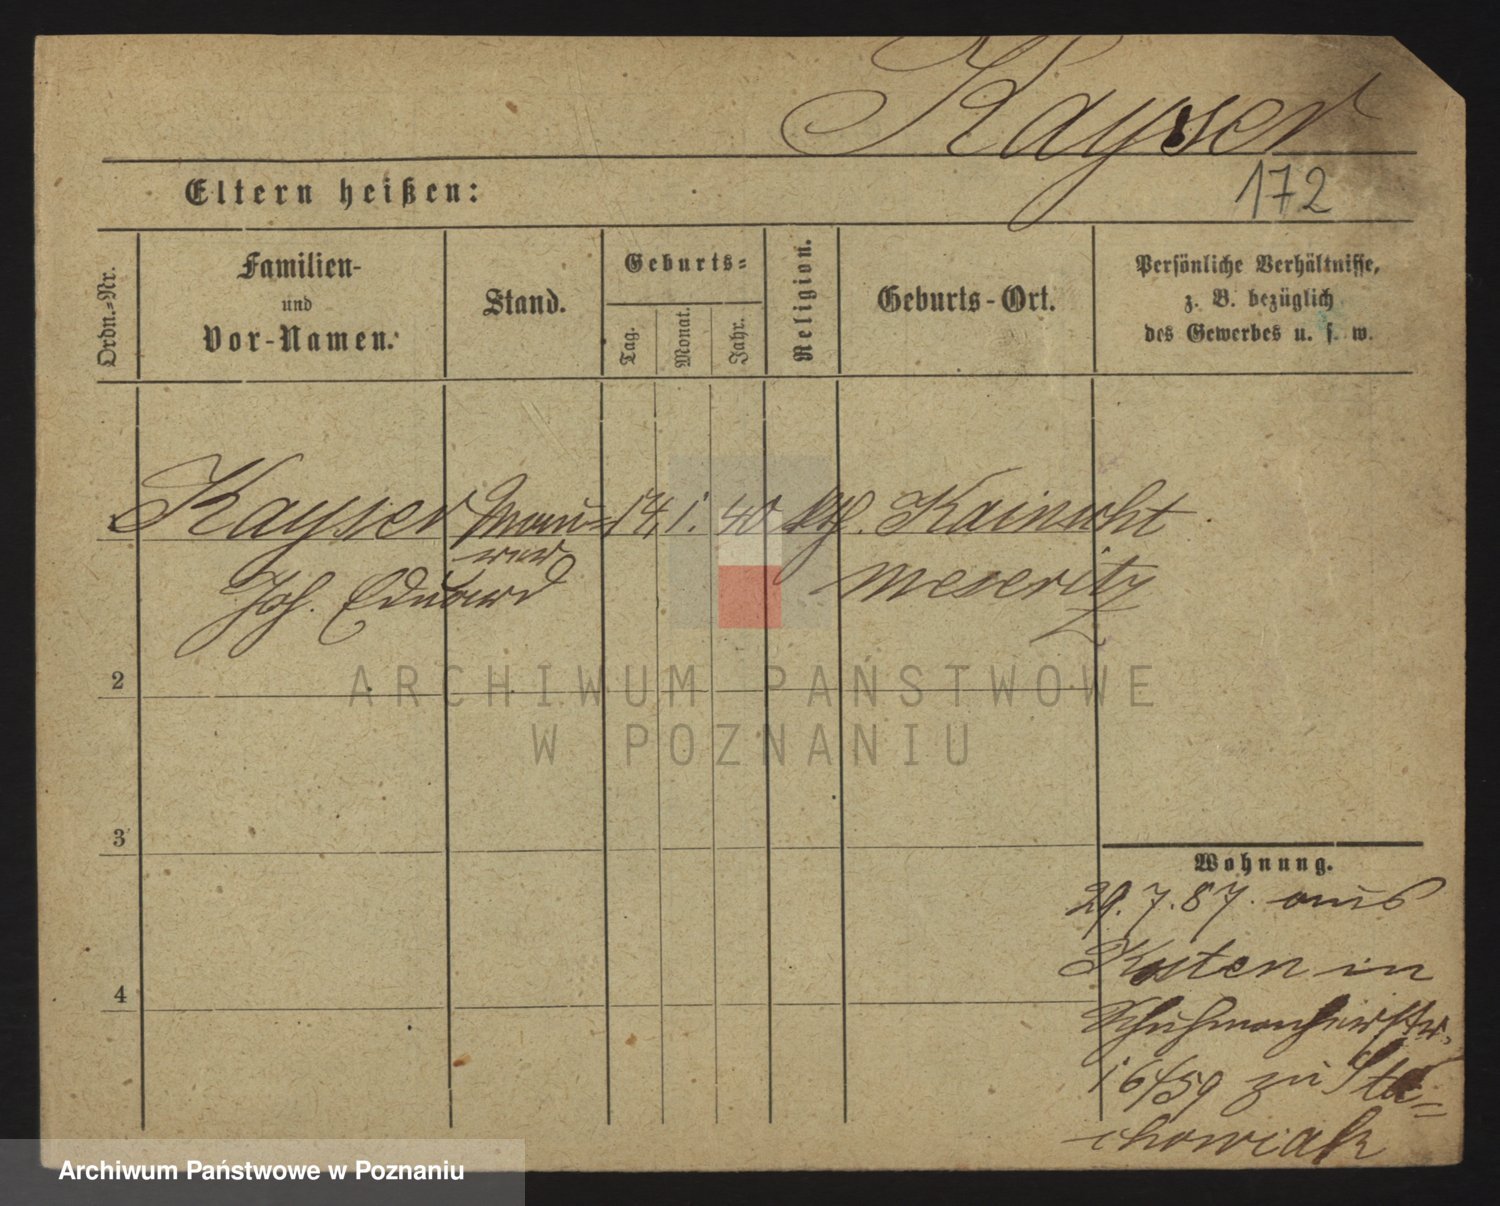 Kayser
Eltern heißen:
172
Ordn.-Nr.
Familien-
und
Vor-Namen.
Stand.
Geburts-
Tag.
Monat.
Jahr.
Religion.
Geburts-Ort.
Persönliche Verhältnisse,
z. B. bezüglich
des Gewerbes u. s. w.
Kayser Mau- 14 1. 40 kth. Kainscht
rer
Joh. Eduard Meseritz
2
ARCHIWUM PAŃSTWOWE
W POZNANIU
3
Wohnung.
29. 7. 87. aus
Kosten in
Schuhmacherstr.
16/59 zu Sta-
chowiak
4
Archiwum Państwowe w Poznaniu